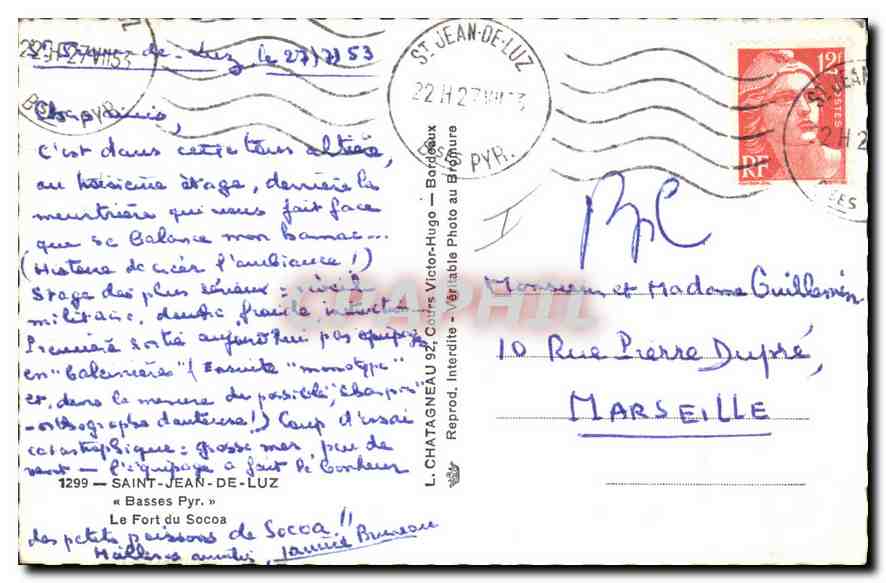 St Jean-de-Luz le 27/7/53
C'est dans cette tour altière,
au troisième étage, derrière la
meurtrière qui nous fait face
que se balance mon hamac...
(Histoire de créer l'ambiance!)
Stage des plus sérieux :
militaire,
Première sortie aujourd'hui par équipage
en "Baleinières" (Ensuite "monotype"
et, dans la mesure du possible,
- orthographe douteuse!) Coup d'essai
catastrophique : grosse mer, peu de
vent — l'équipage a fait le bonheur
1299 — SAINT-JEAN-DE-LUZ
« Basses Pyr. »
Le Fort du Socoa
des petits poissons de Socoa!!
L. CHATAGNEAU 92, Cours Victor-Hugo — Bordeaux
Reprod. Interdite - Véritable Photo au Bromure
ST JEAN-DE-LUZ
22H 27 VII 53
BSES PYR.
12F
POSTES
RF
CPAPHIL
Monsieur et Madame Guillemin
10 Rue Pierre Dupré,
MARSEILLE